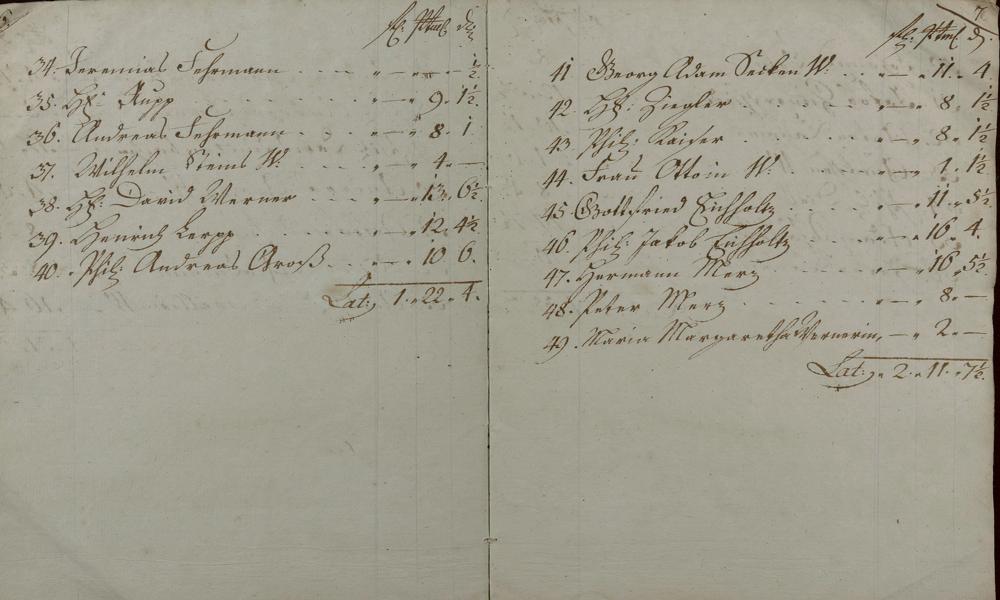 fl: Stbr d:
34. Jeremias Fehrmann . . . . " — " — ½
35. H: Rupp . . . . " — " 9. 1½.
36. Andreas Fehrmann . . . " — " 8. 1.
37. Wilhelm Steins W. . . . " — " 4. —
38. H: David Werner . . . . " — " 13. 6½.
39. Henrich Lerpp . . . . " — " 12. 4½.
40. Phil: Andreas Groß . . . " — " 10. 6.
Lat: 1. " 22. " 4.
7.
fl: d.
41 Georg Adam W. . . " — " 11. 4.
42. H: Ziegler . . . . " — " 8. 1½
43. Phil: Kaiser . . . . " — " 8. 1½
44. Frau Ottoin W. . . . " — " 1. 1½
45. Gottfried Eichholtz . . . . " — " 11. 5½
46. Phil: Jakob Eichholtz . . . " — " 16. 4.
47. Hermann Merz . . . . " — " 16. 5½
48. Peter Merz . . . . " — " 8. —
49. Maria Margaretha Wernerin, — " 2. —
Lat: " 2. " 11. " 7½.